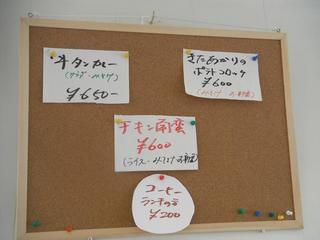 牛タンカレー
(サラダ・みそ汁)
¥650-
きたあかりの
ポテトコロッケ
¥600
チキン南蛮
¥600
(ライス・みそ汁・お新香)
コーヒー
ランチの方
¥200